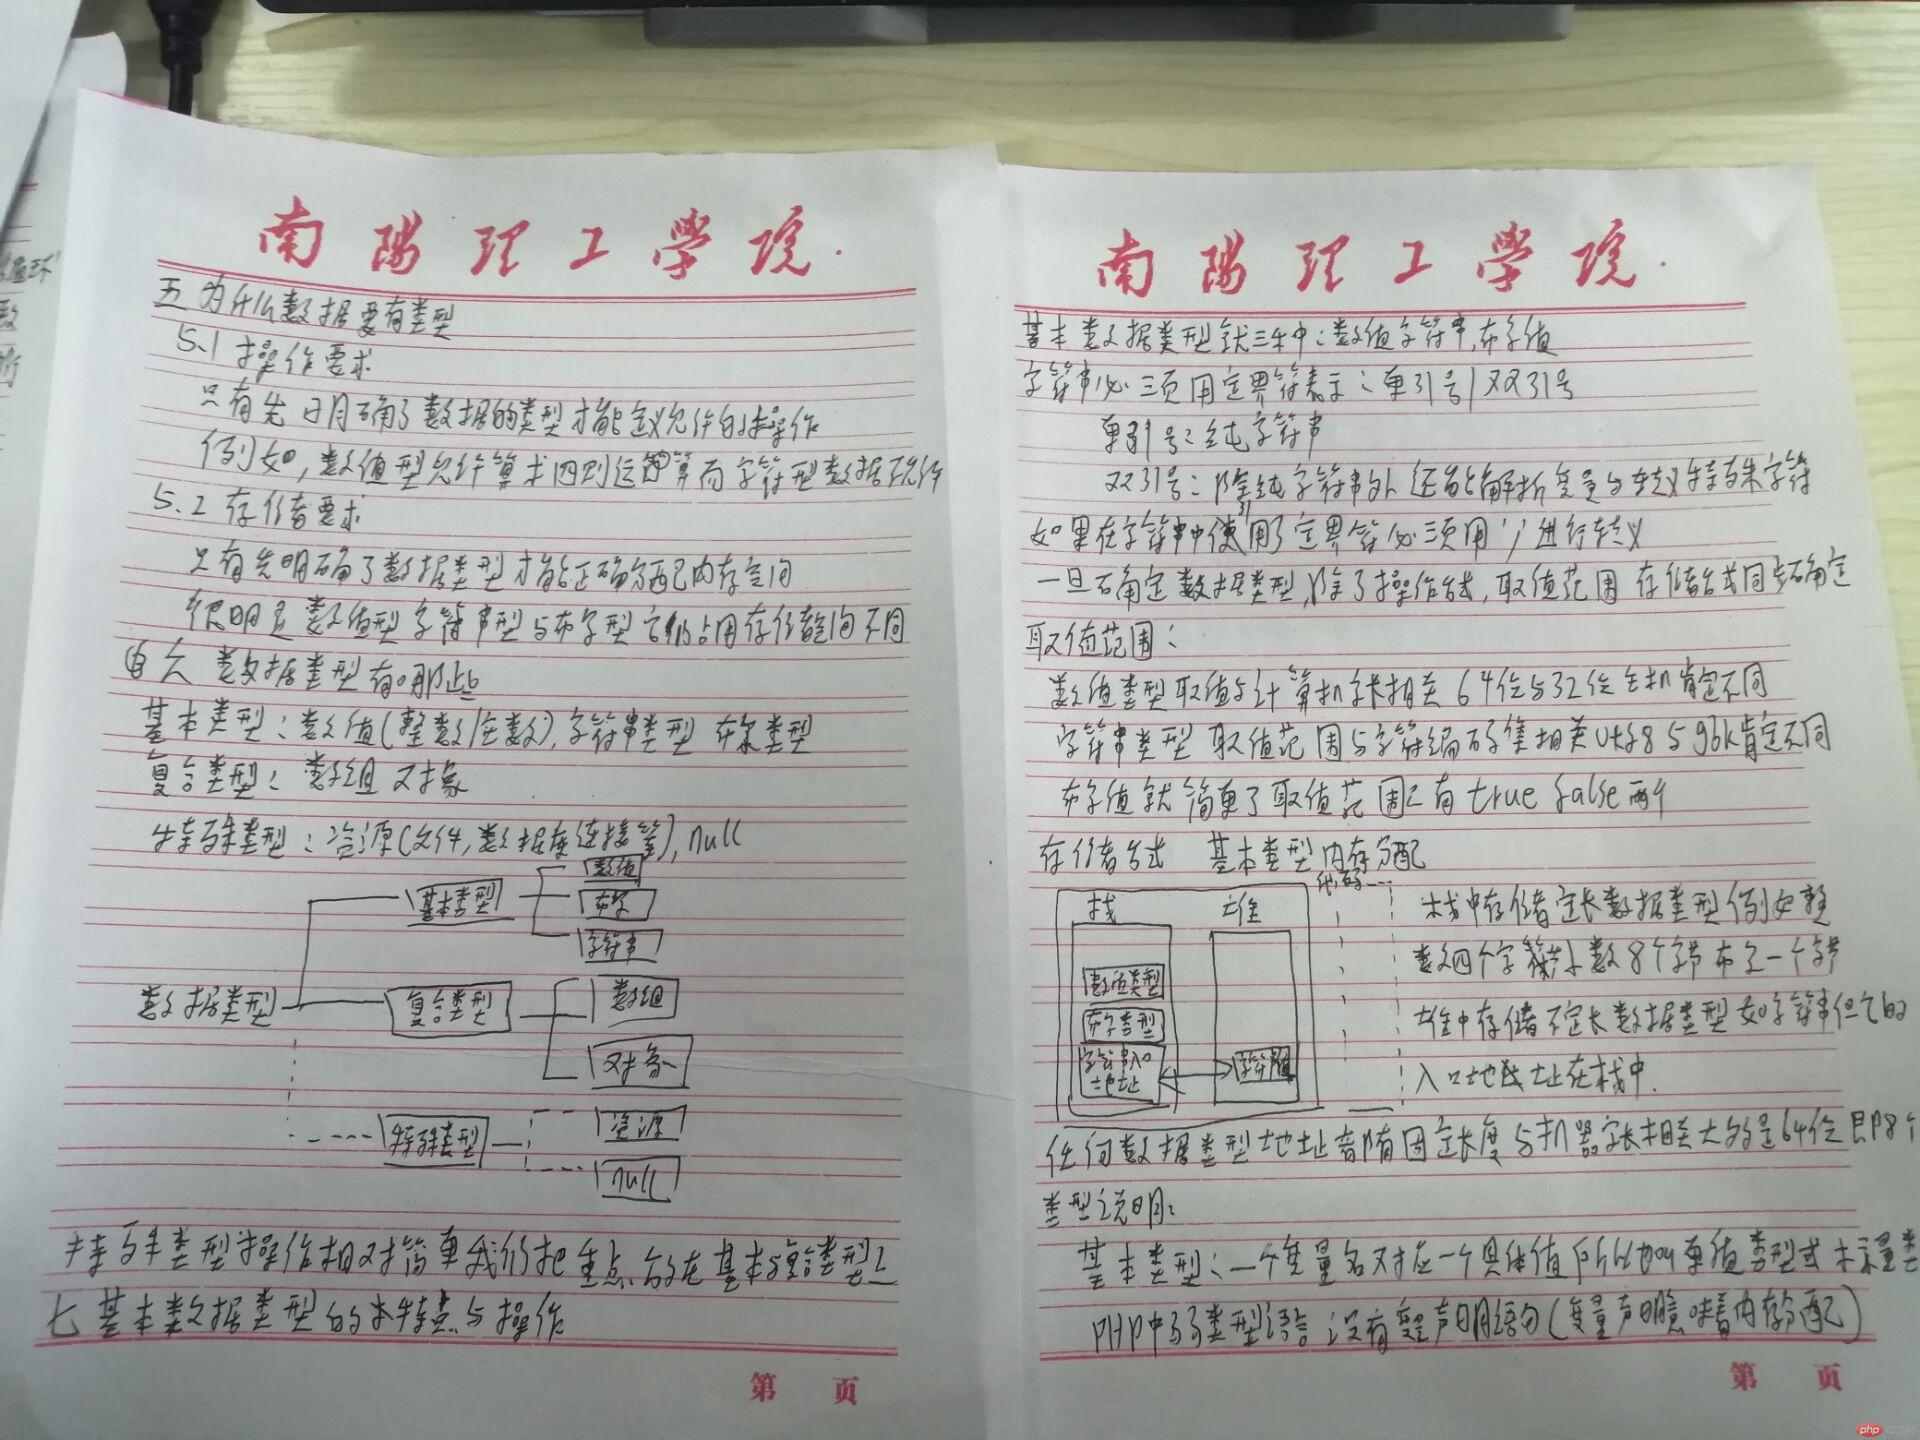 南陽理工學院
五 为什么数据要有类型
5.1 操作要求
只有先明确了数据的类型才能定义允许的操作
例如,数值型允许算术四则运算而字符型数据不允许
5.2 存储要求
只有先明确了数据类型才能正确分配内存空间
很明显 数值型 字符串型与布尔型 它们占用存储空间不同
六 数据类型有哪些
基本类型:数值(整数/,字符串类型 布尔类型
复合类型:数组 对象
特殊类型:资源(文件,数据库连接等),null
数据类型
基本类型
数值
布尔
字符串
复合类型
数组
对象
特殊类型
资源
null
特殊类型操作相对简单我们把重点放在基本与复合类型上
七 基本数据类型的特点与操作
第 页
南陽理工學院
基本数据类型就三种:数值字符串,布尔值
字符串必须用定界符表示:单引号/双引号
单引号:纯字符串
双引号:除纯字符串外还能解析变量与转义特殊字符
如果在字符串中使用了定界符必须用'\'进行转义
一旦确定数据类型,除了操作方式,取值范围 存储方式同步确定
取值范围:
数值类型取值与计算机字长相关 64位与32位主机肯定不同
字符串类型 取值范围与字符编码集相关utf8与gbk肯定不同
布尔值就简单了取值范围只有true false两个
存储方式 基本类型内存分配
栈
堆
代码
数值类型
布尔类型
字符串入口地址
字符串
栈中存储定长数据类型例如整
数四个字节小数8个字节布尔一个字节
堆中存储不定长数据类型如字符串但它的
入口地址在栈中.
任何数据类型地址都有固定长度与机器字长相关大多是64位即8个
类型说明:
基本类型:一个变量名对应一个具体值所以也叫单值类型或标量类
PHP中弱类型语言没有变量声明语句(变量声明意味着内存分配)
第 页
php